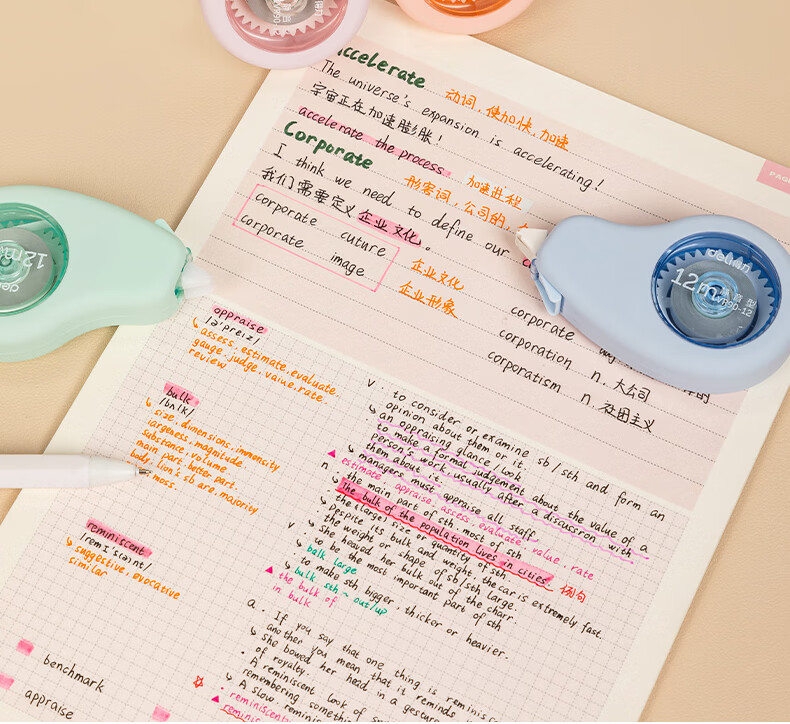 Accelerate
动词，使加快，加速
The universe's expansion is accelerating!
宇宙正在加速膨胀！
accelerate the process.
加速进程
Corporate
形容词，公司的，
I think we need to define our
我们需要定义企业文化。
corporate cuture 企业文化
corporate image 企业形象
corporate
corporation n. 大公司
corporatism n 社团主义
PAGE
deli
12m
LVP90-12
12m
appraise
/ə'preɪz/
assess. estimate. evaluate.
gauge. judge. value. rate.
review
bulk
/bʌlk/
size. dimensions. immensity
largeness. magnitude
substance. volume
main part. better part.
body. lion's sb are. majority
moss.
reminiscent
/remɪ's(ə)nt/
suggestive. evocative
similar
benchmark
appraise
v. to consider or examine sb/sth and form an
opinion about them or it.
an appraising glance/look
to make a formal judgement about the value of a
person's work. usually after a discussron with
them about it.
managers must appraise all staff.
estimate appraise. assess. evaluate value. rate
n. the main part of sth. most of sth
The bulk of the population lives in cities. 例句
the (large) size or quantity of sth
Despite its bulk and weight. the car is extremely fast.
the weight or shape of sb/sth large.
She heaved her bulk out of the charr.
v. to be the most important part of sth
balk large
to make sth bigger, thicker or heavier.
bulk sth ~ out/up
the bulk of
in bulk
a. If you say that one thing is reminisc
another you mean that it reminds
she bowed her head in a gesture
of royalty.
A reminiscent look of
remembering somethin
A slow. reminis
reminiscent